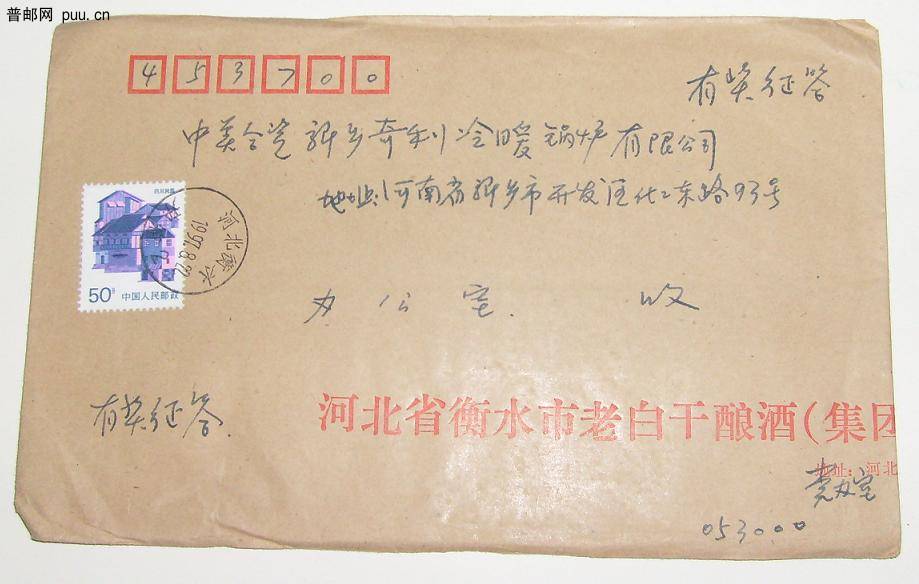 普邮网 puu.cn
453700
有奖征答
中美合瓷新乡奇利冷暖锅炉有限公司
地址:河南省新乡市开发区化工东路93号
四川民居
50分 中国人民邮政
河北衡水
1997.8.22
办公室 收
有奖征答
河北省衡水市老白干酿酒(集团
地址:河北
党办室
053000